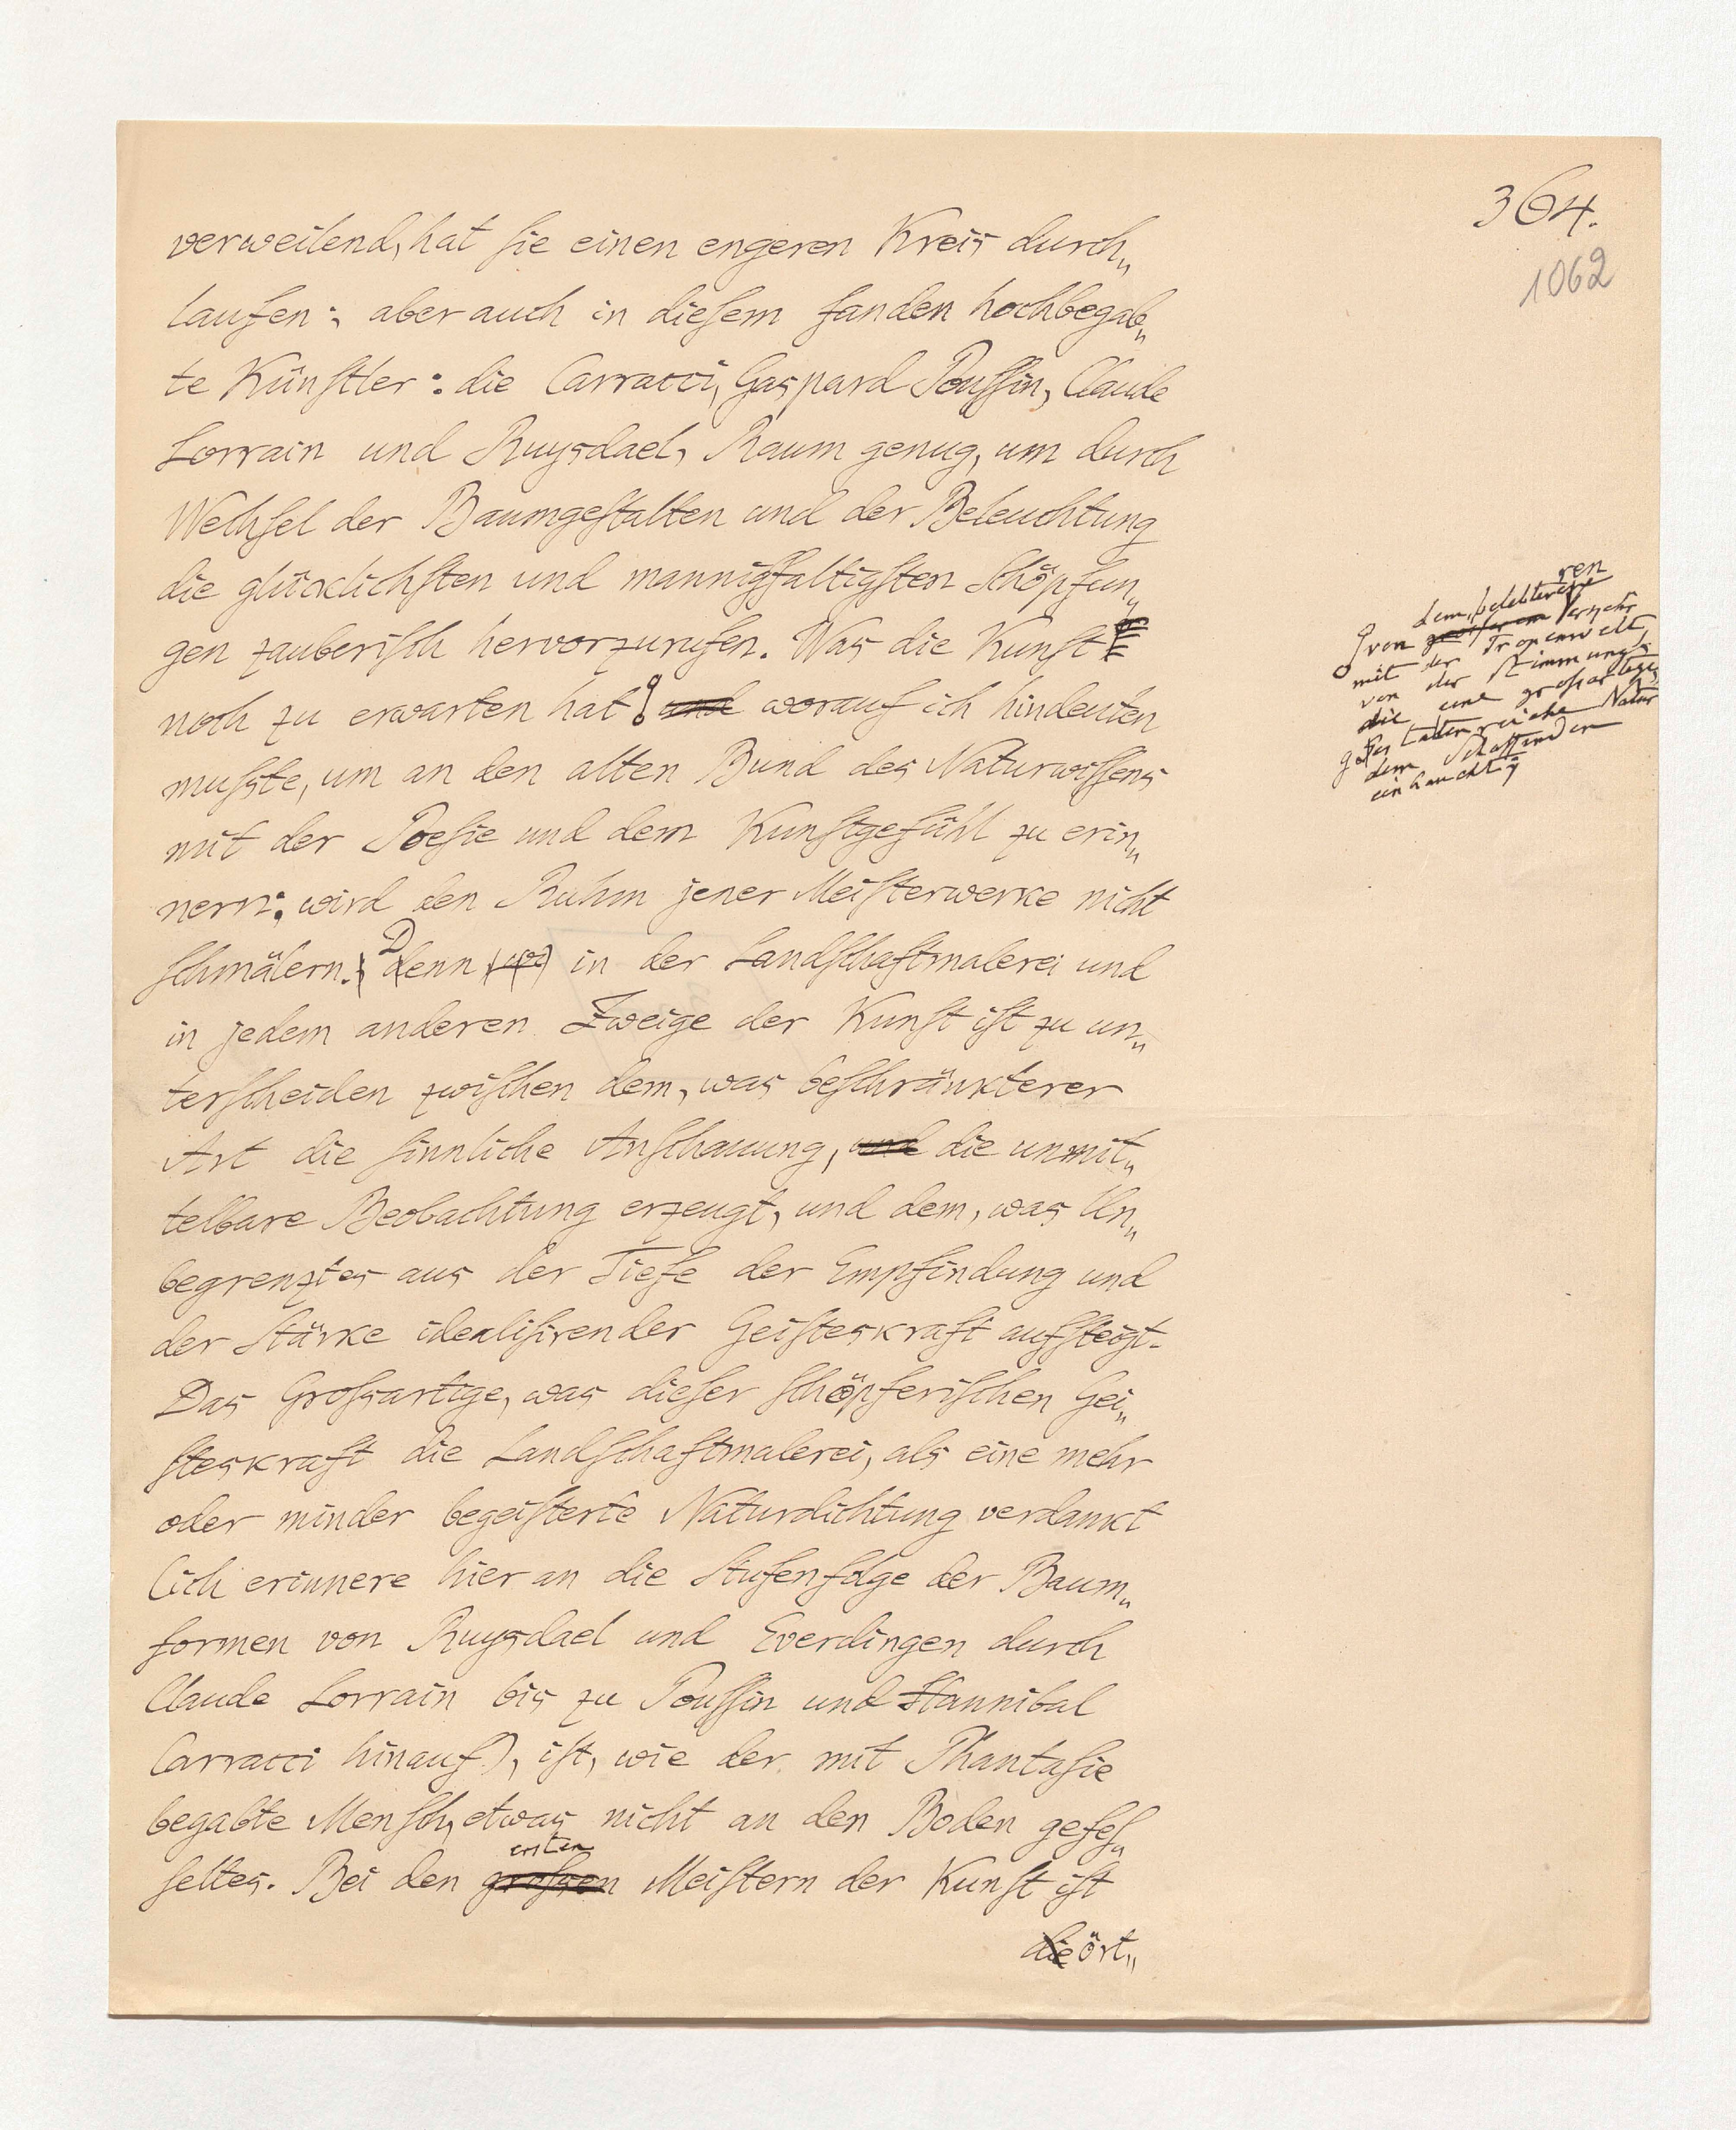 364.
1062
verweilend, hat sie einen engeren Kreis durch„
laufen; aber auch in diesem fanden hochbegab„
te Künstler: die Carracci, Gaspard Poussin, Claude
Lorrain und Ruysdael, Raum genug, um durch
Wechsel der Baumgestalten und der Beleuchtung
die glücklichsten und mannigfaltigsten Schöpfun„
gen zauberisch hervorzurufen. Was die Kunst
noch zu erwarten hat und worauf ich hindeuten
mußste, um an den alten Bund des Naturwissens
mit der Poesie und dem Kunstgefühl zu erin„
nern: wird den Ruhm jener Meisterwerke nicht
schmälern. Denn in der Landschaftmalerei und
in jedem anderen Zweige der Kunst ist zu un„
terscheiden zwischen dem, was beschränkterer
Art die sinnliche Anschauung, und die unmit„
telbare Beobachtung erzeugt, und dem, was Un„
begrenztes aus der Tiefe der Empfindung und
der Stärke idealisirender Geisteskraft aufsteigt.
Das Großsartige, was dieser schöpferischen Gei„
steskraft die Landschaftmalerei, als eine mehr
oder minder begeisterte Naturdichtung verdankt
(ich erinnere hier an die Stufenfolge der Baum„
formen von Ruysdael und Everdingen durch
Claude Lorrain bis zu Poussin und Hannibal
Carracci hinauf), ist, wie der mit Phantasie
begabte Mensch, etwas nicht an den Boden gefes„
ersten
seltes. Bei den großsen Meistern der Kunst ist
die ört„
ren
dem belebteren
von größerem Verkehr
mit der Tropenwelt,
von der Stimmung,
die eine großartige,
gestaltenreiche Natur
dem Schaffenden
einhaucht;